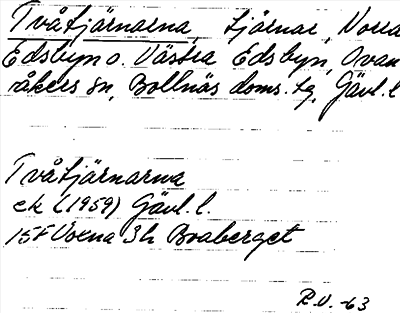 Tvåtjärnarna, tjärnar, Norra
Edsbyn o. Västra Edsbyn, Ovan
åkers sn, Bollnäs doms. tg, Gävl. l.
Tvåtjärnarna
ek (1959) Gävl. l.
15F Voxna 3h Boaberget
R.U. -63